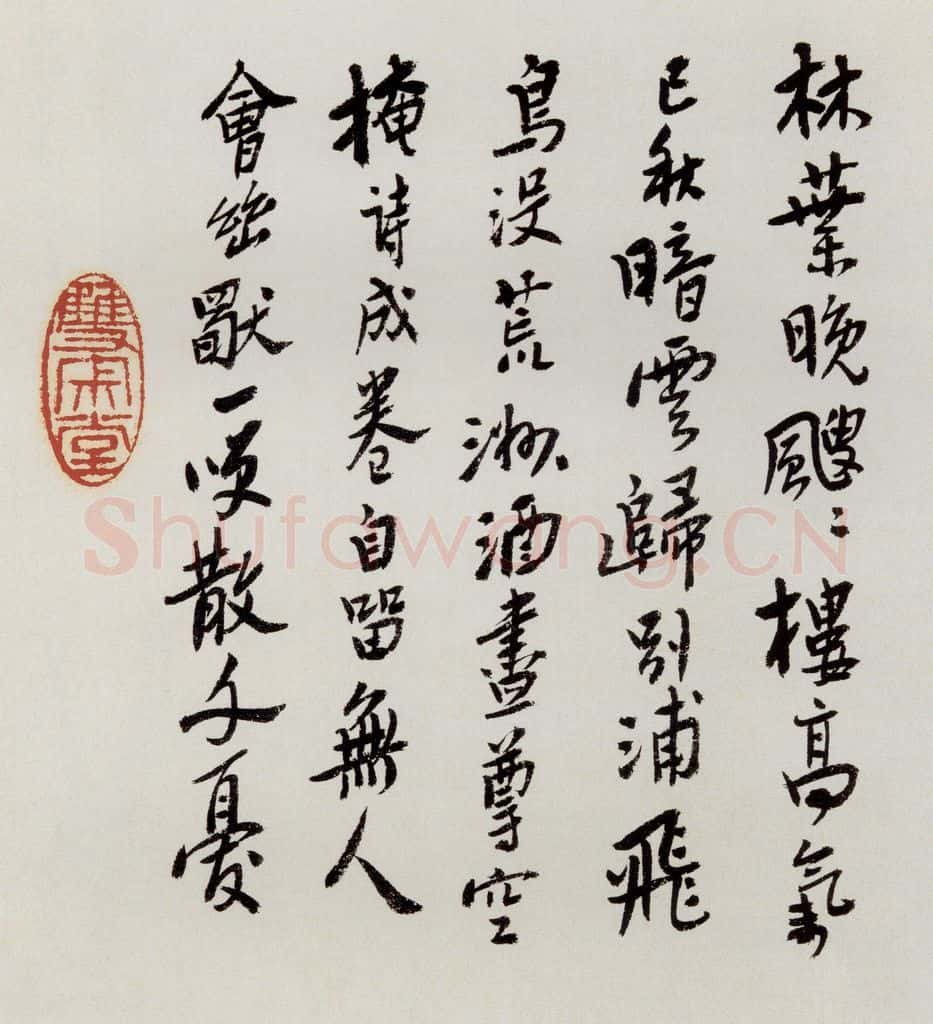 林葉晚颼〻樓高氣
已秋暗雲歸別浦飛
鳥沒荒洲酒盡尊空
掩詩成卷自留無人
會幽猒一咲散千憂
雙宋堂
Shufawang.CN